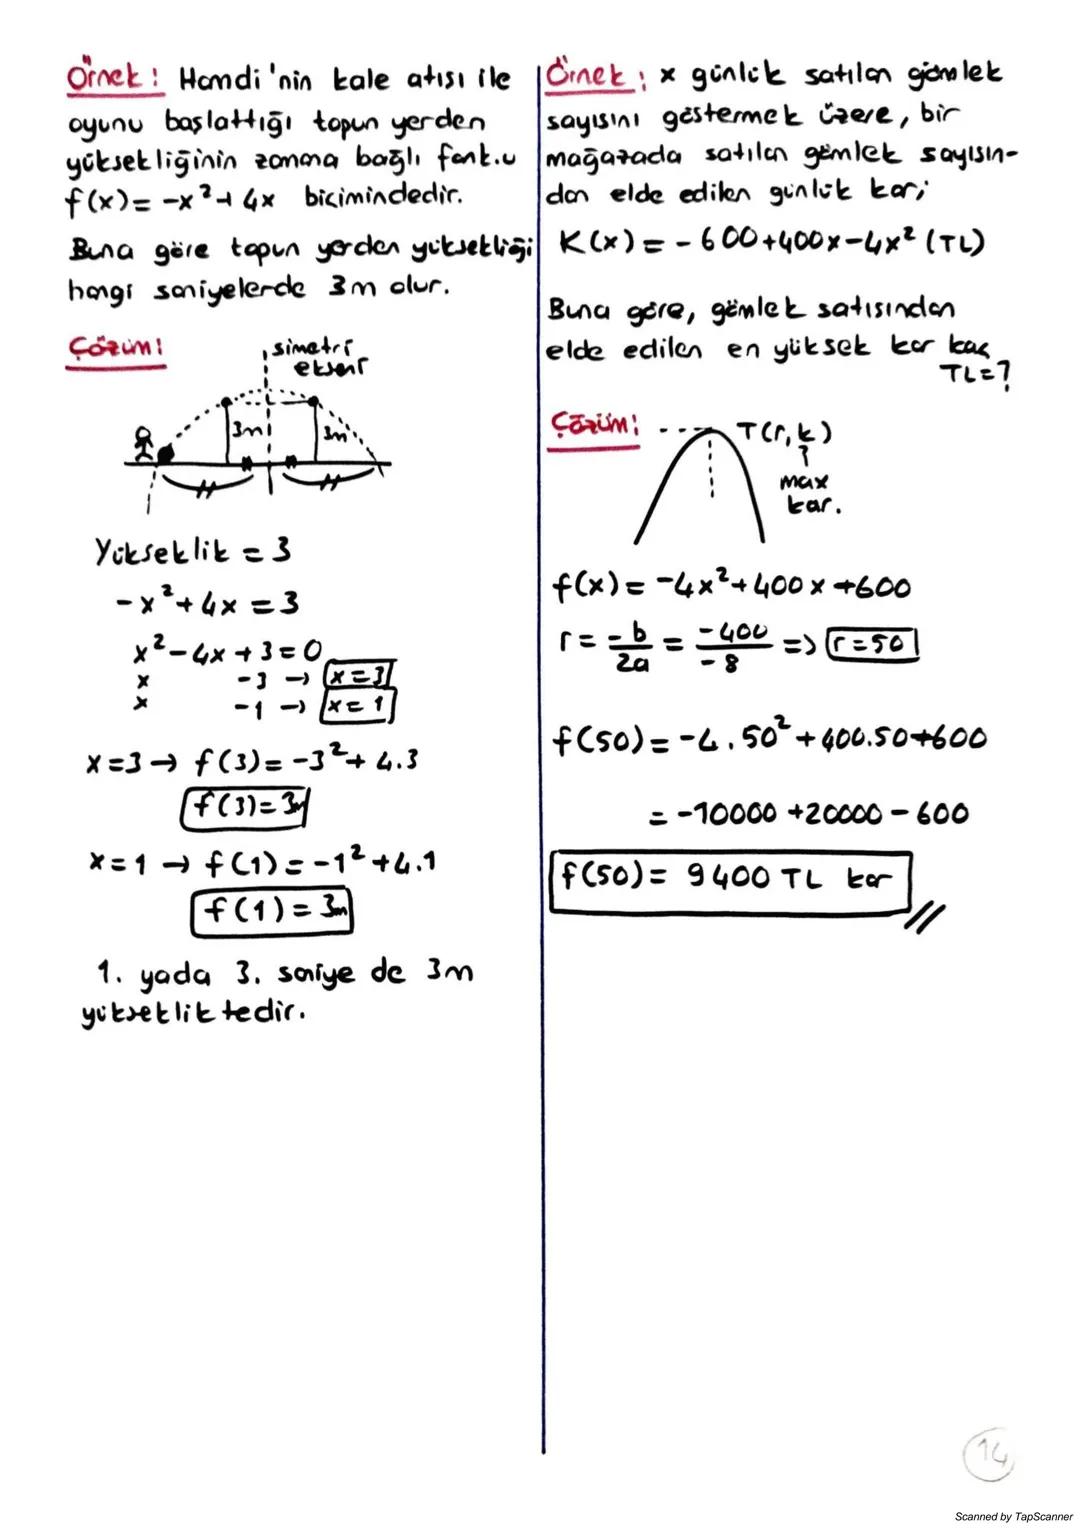 Örnek: Hamdi'nin kale atışı ile
oyunu başlattığı topun yerden
yüksekliğinin zamana bağlı fonk.u
f(x) = -x² + 4x biçimindedir.
Buna göre topun yerden yüksekliği
hangi saniyelerde 3m olur.
Çözüm:
simetri
ekseni
3m
3m
Yükseklik = 3
-x² + 4x = 3
x² - 4x + 3 = 0
x -3 → x = 3
x -1 → x = 1
x = 3 → f(3) = -3² + 4.3
f(3) = 3m
x = 1 → f(1) = -1² + 4.1
f(1) = 3m
1. yada 3. saniye de 3m
yüksekliktedir.
Örnek: x günlük satılan gömlek
sayısını göstermek üzere, bir
mağazada satılan gömlek sayısın-
dan elde edilen günlük kar;
K(x) = -600 + 400x - 4x² (TL)
Buna göre, gömlek satışından
elde edilen en yüksek kar kaç
TL = ?
Çözüm:
T(r, k)
max
kar.
f(x) = -4x² + 400x - 600
r = -b/2a = -400/-8 => r = 50
f(50) = -4.50² + 400.50 - 600
= -10000 + 20000 - 600
f(50) = 9400 TL kar
14
Scanned by TapScanner